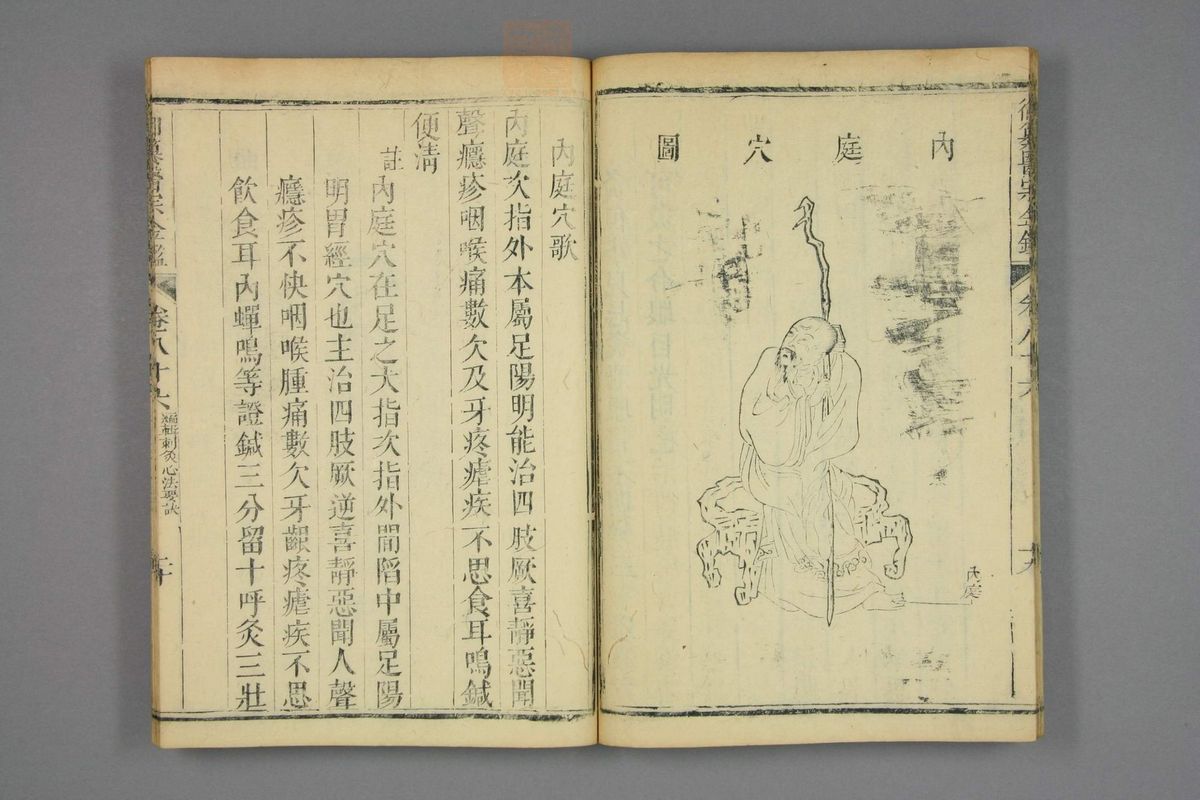 內庭穴圖
內庭
內庭穴歌
內庭次指外本屬足陽明能治四肢厥喜靜惡聞
聲癮疹咽喉痛數欠及牙疼瘧疾不思食耳鳴鍼
便清
註
內庭穴在足之大指次指外間陷中屬足陽
明胃經穴也主治四肢厥逆喜靜惡聞人聲
癮疹不快咽喉腫痛數欠牙齦疼瘧疾不思
飲食耳內蟬鳴等證鍼三分留十呼灸三壯
卷八十六
編輯刺灸心法要訣